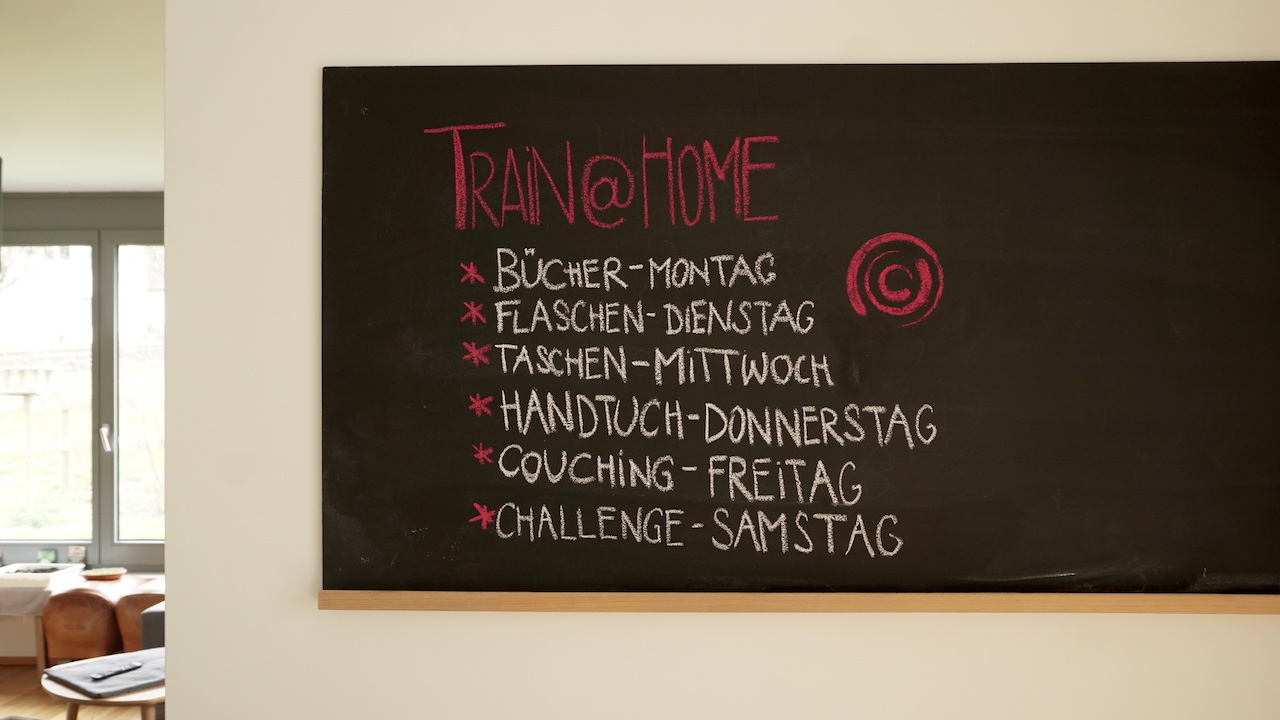 TRAiN@HOME
* BÜCHER-MONTAG
* FLASCHEN-DiENSTAG
* TASCHEN-MiTTWOCH
* HANDTUCH-DONNERSTAG
* COUCHiNG-FREiTAG
* CHALLENGE-SAMSTAG
©